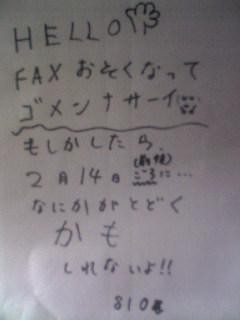 HELLO
FAX おそくなって
ゴメンナサーイ
もしかしたら、
(前後)
2月14日ごろに…
なにかがとどく
かも
しれないよ!!
810